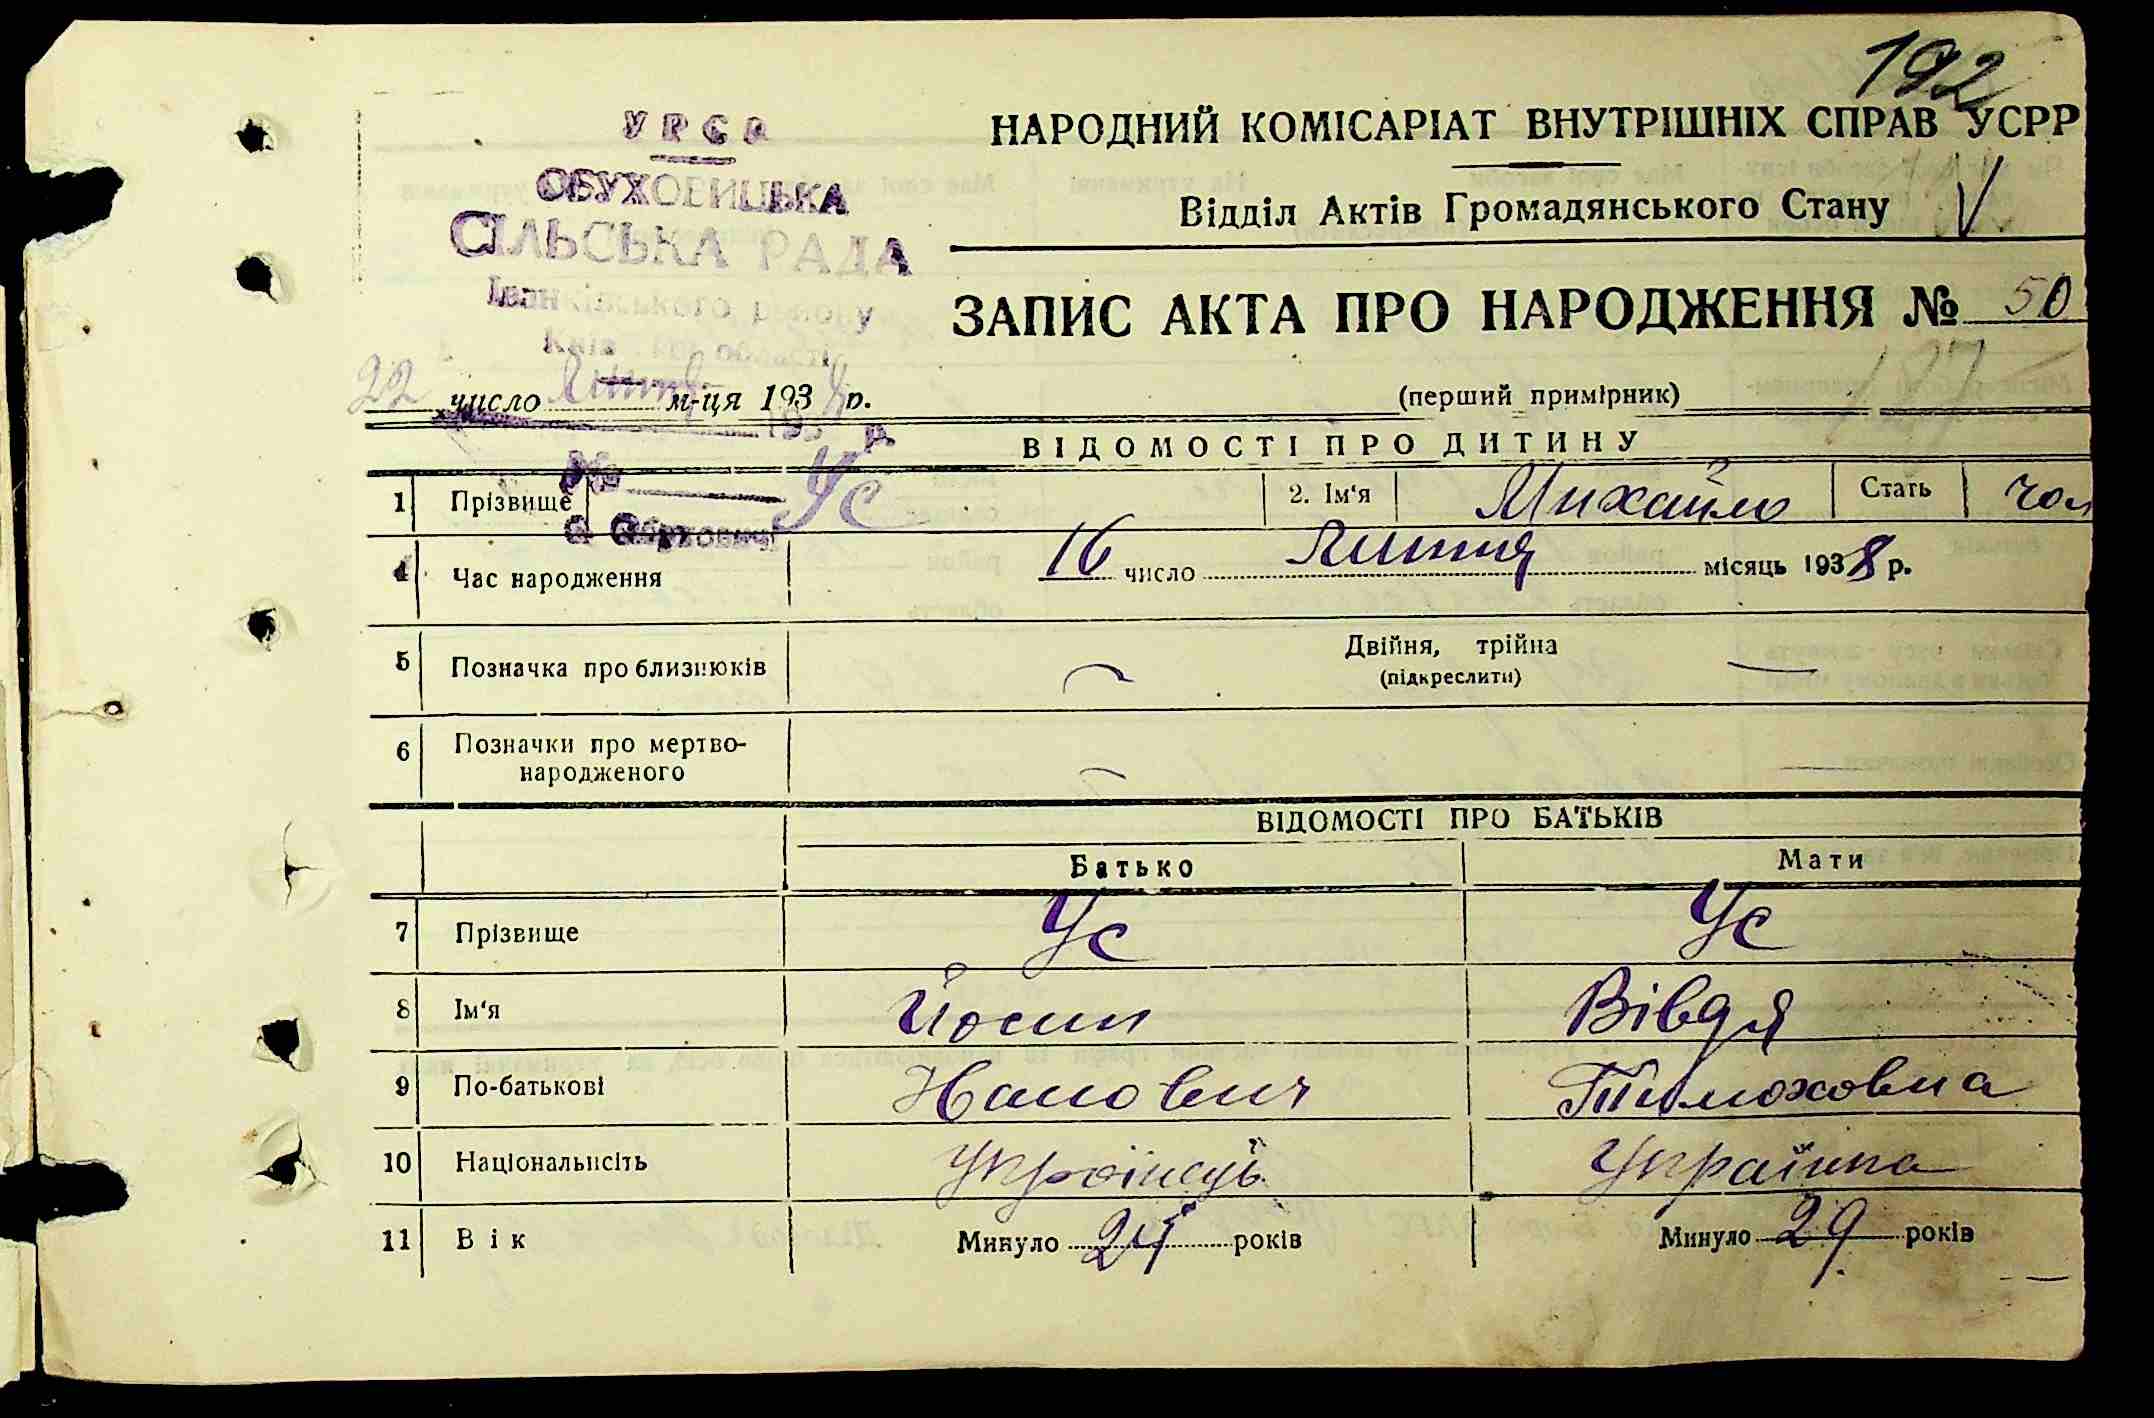 192
УРСР
ОБУХОВИЦЬКА
СІЛЬСЬКА РАДА
Іванківського району
Київської області
НАРОДНИЙ КОМІСАРІАТ ВНУТРІШНІХ СПРАВ УСРР
Відділ Актів Громадянського Стану V
ЗАПИС АКТА ПРО НАРОДЖЕННЯ № 50
22 число Липня м-ця 1938 р.
(перший примірник)
193 р.
№
ВІДОМОСТІ ПРО ДИТИНУ
1 Прізвище Ус 2. Ім'я Михайло Стать чол
4 Час народження 16 число Липня місяць 1938 р.
5 Позначка про близнюків Двійня, трійна
(підкреслити)
6 Позначки про мертво-
народженого
ВІДОМОСТІ ПРО БАТЬКІВ
Батько Мати
7 Прізвище Ус Ус
8 Ім'я Йосип Вівдя
9 По-батькові Тимоховна
10 Національність Українець Українка
11 Вік Минуло років Минуло 29 років